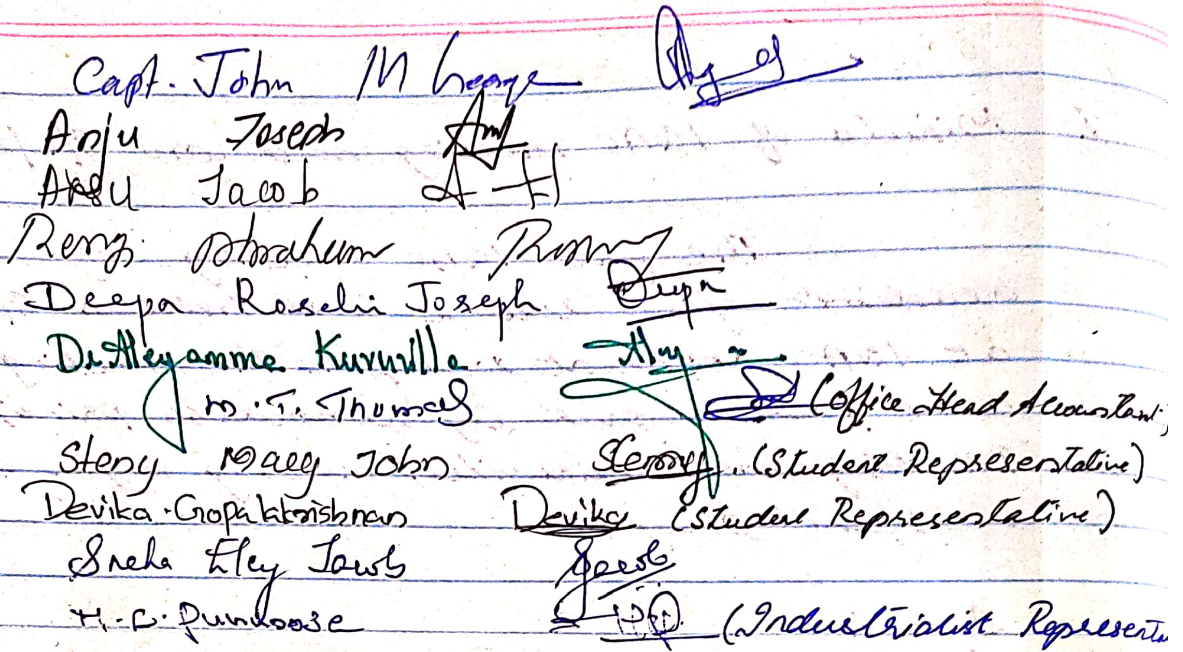 Capt. John M George
Anju Joseph
Ansu Jacob
Reny Abraham
Deepa Roselin Joseph Deepa
Dr. Aleyamma Kuruvilla
M. T. Thomas (Office Head Accountant)
Steny Mary John Steny. (Student Representative)
Devika Gopalakrishnan Devika (Student Representative)
Sneha Eley Jacob Jacob
Punnoose (Industrialist Representa